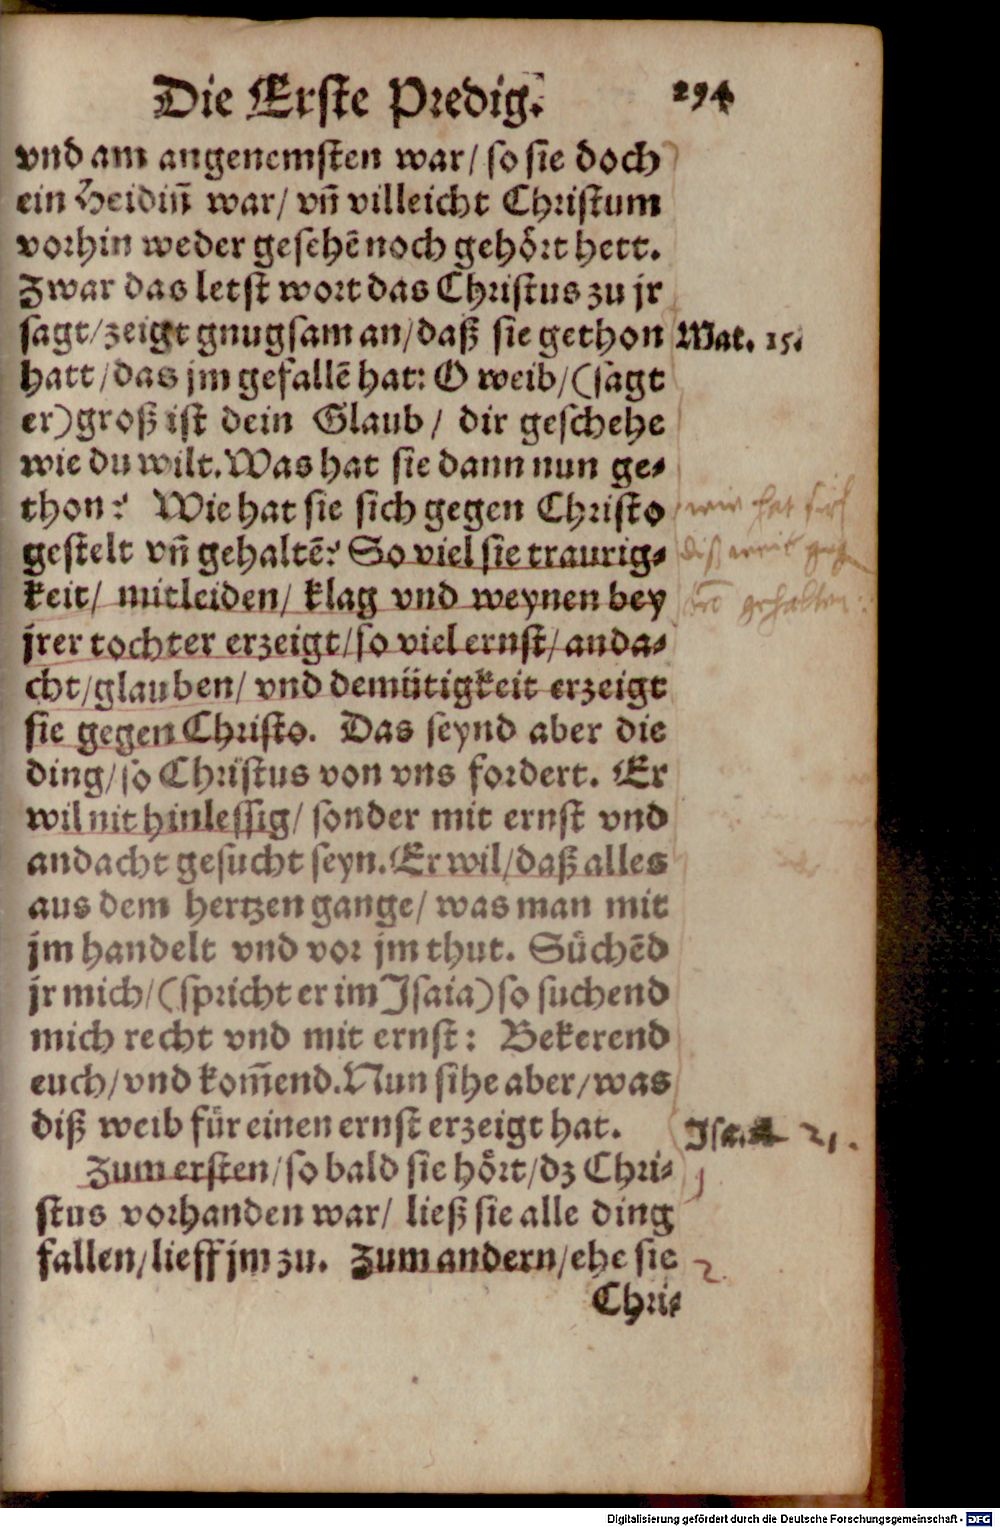 Die Erste Predig. 294
vnd am angenemsten war/ so sie doch
ein Heidin̄ war/ vn̄ villeicht Christum
vorhin weder gesehē noch gehört hett.
Zwar das letst wort das Christus zu jr
sagt/zeigt gnugsam an/daß sie gethon
Mat. 15.
hatt/das jm gefallē hat: O weib/(sagt
er)groß ist dein Glaub/ dir geschehe
wie du wilt. Was hat sie dann nun ge-
thon? Wie hat sie sich gegen Christo
wie hat sich
gestelt vn̄ gehaltē? So viel sie traurig-
diß weib
keit/ mitleiden/ klag vnd weynen bey
gehalten
jrer tochter erzeigt/so viel ernst/anda-
cht/glauben/ vnd demütigkeit erzeigt
sie gegen Christo. Das seynd aber die
ding/so Christus von vns fordert. Er
wil nit hinlessig/ sonder mit ernst vnd
andacht gesucht seyn. Er wil/daß alles
aus dem hertzen gange/ was man mit
jm handelt vnd vor jm thut. Süchēd
jr mich/(spricht er im Isaia)so suchend
mich recht vnd mit ernst: Bekerend
euch/vnd kom̄end. Nun sihe aber/was
diß weib für einen ernst erzeigt hat.
21.
Zum ersten/so bald sie hört/dz Chri-
1
stus vorhanden war/ ließ sie alle ding
fallen/lieff jm zu. Zum andern/ehe sie
2.
Chri-
Digitalisierung gefördert durch die Deutsche Forschungsgemeinschaft - DFG